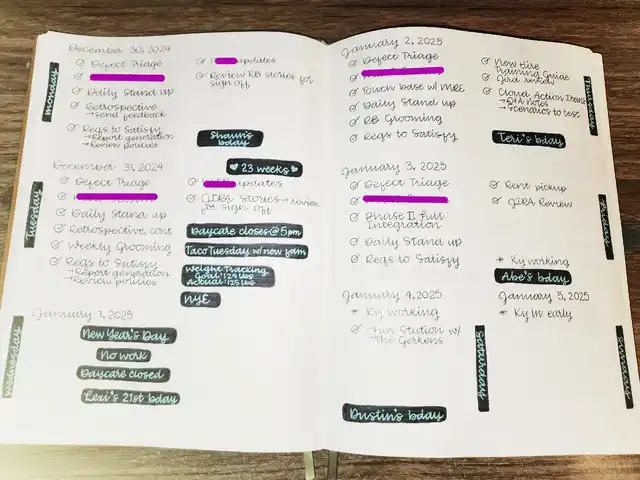 December 30, 2024
monday
Defect Triage
Daily Stand up
Retrospective
→Send feedback
Reqs to Satisfy
→Report generation
→Review policies
updates
Review RB stories for
sign off
Shaun's
bday
23 weeks
December 31, 2024
Tuesday
Defect Triage
Daily Stand up
Retrospective, cont
Weekly Grooming
Reqs to Satisfy
→Report generation
→Review policies
updates
JIRA Stories → review
for sign off
Daycare closes @ 5pm
Taco Tuesday w/ now fam
Weight Tracking
Goal: 124 lbs
Actual: 125 lbs
NYE
January 1, 2025
wednesday
New Year's Day
No work
Daycare closed
Lexi's 21st bday
January 2, 2025
Thursday
Defect Triage
Touch base w/ MRE
Daily Stand up
RB Grooming
Reqs to Satisfy
New Hire
Training Guide
Jira review
Cloud Action Items
→ Notes
→Scenarios to test
Teri's bday
January 3, 2025
Friday
Defect Triage
Phase II Full
Integration
Daily Stand up
Reqs to Satisfy
Rent pickup
JIRA Review
* Ky working
Abe's bday
January 4, 2025
saturday
* Ky working
Fun Station w/
the Gerkens
Dustin's bday
January 5, 2025
sunday
* Ky in early